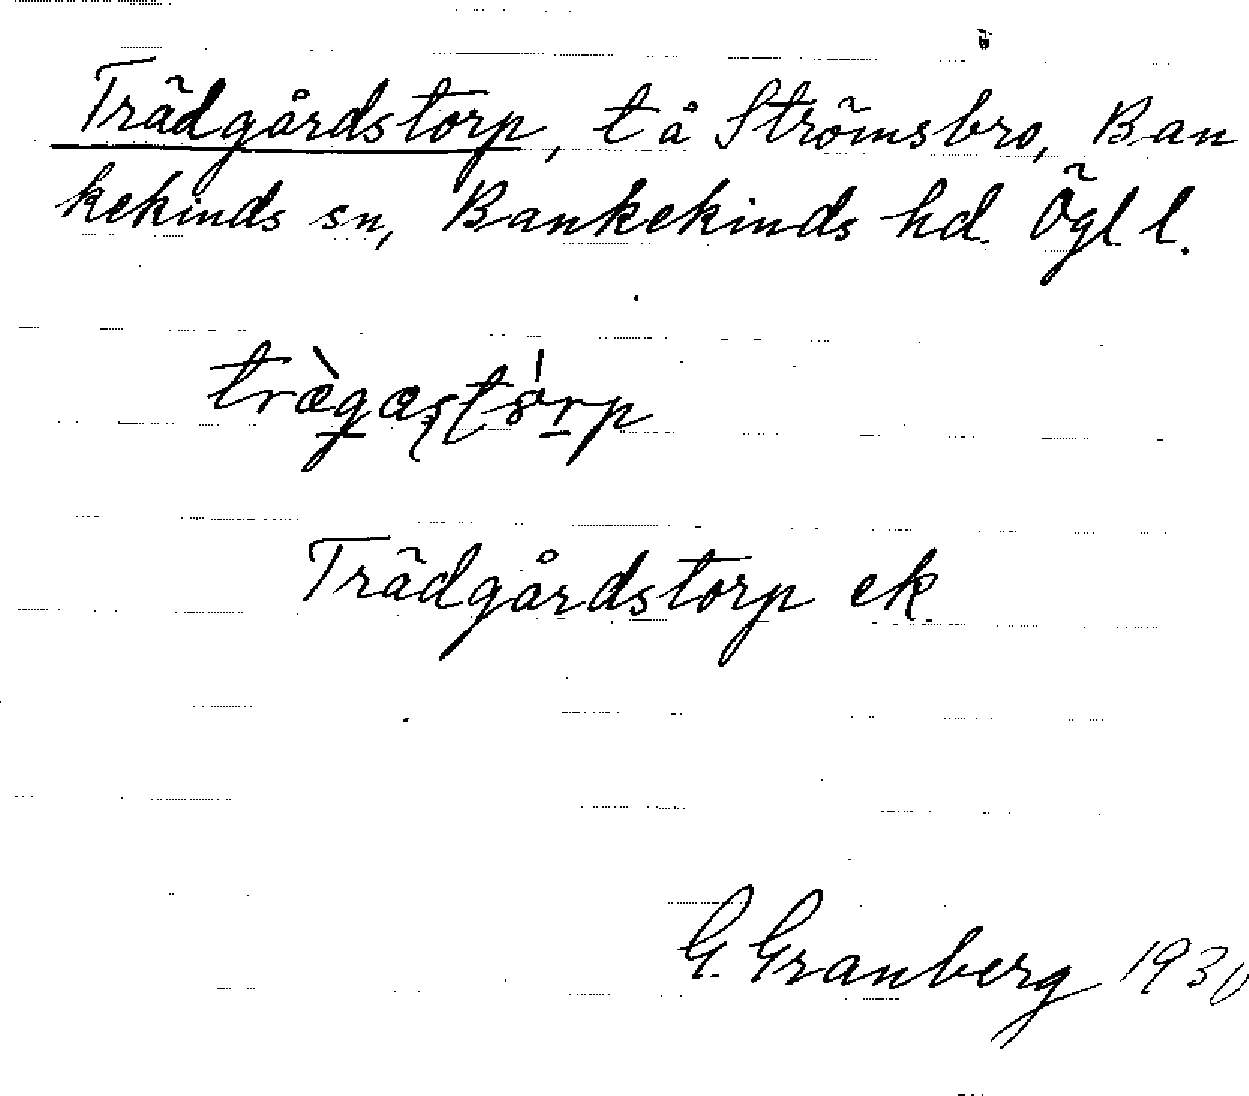 Trädgårdstorp, t å Strömsbro, Ban
kekinds sn, Bankekinds hd. Ögl l.
Trädgårdstorp ek
G. Granberg 1930